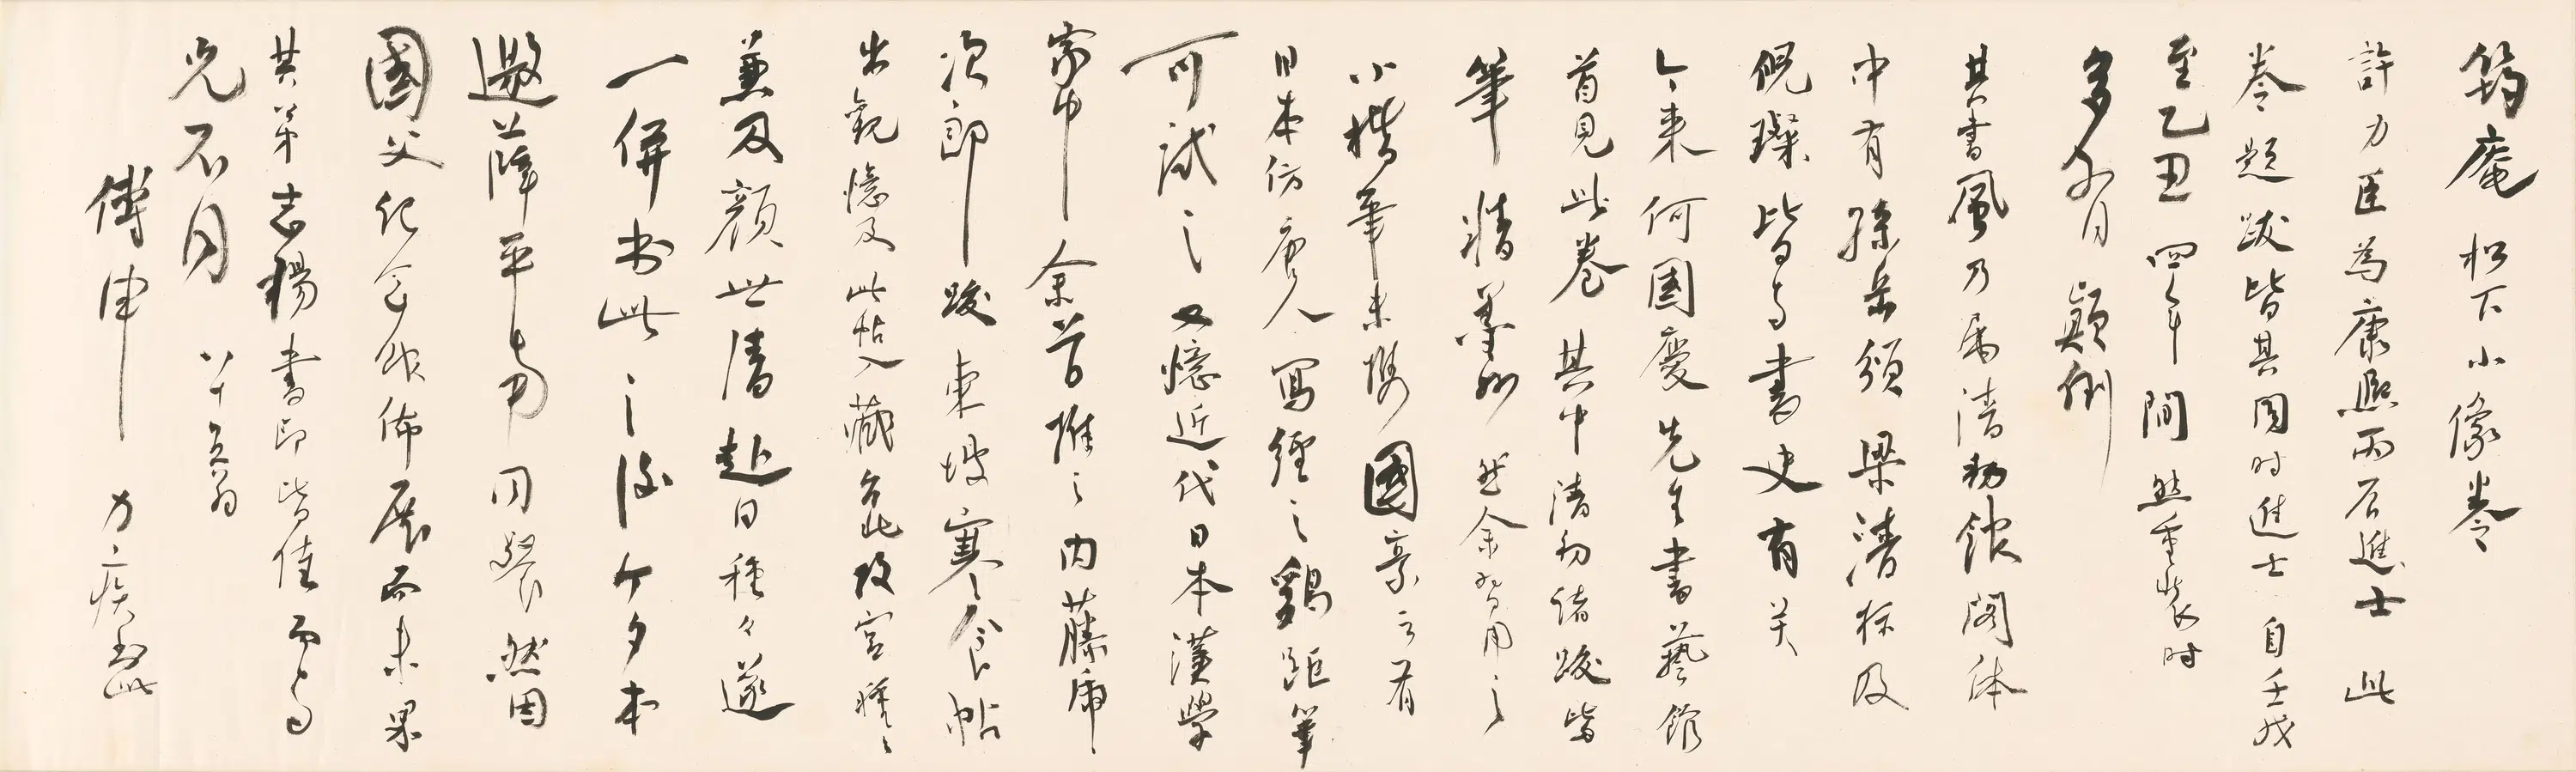 筠庵松下小像卷
許力臣為康熙丙辰進士 此
卷題跋皆其同時進士 自壬戌
至乙丑四年間 然重裝時
多有 顛倒
其書風乃屬清初館閣体
中有孫岳頒 梁清标及
倪璨皆與書史有关
今来何國慶先生書藝館
首見此卷 其中清初諸跋皆
筆精墨妙 然余習用之
小楷筆未攜 國豪云有
日本仿唐人寫經之雞距筆
可試之 又憶近代日本漢學
家中 余首推之內藤虎
次郎 跋東坡寒食帖
出觀憶及此帖入藏台北故宮種々
兼及顏世清赴日種々遂
一併书此 之後
邀薩平 同餐 然因
國父纪念館佈展而未果
其弟志揚書印皆佳 而與
元不同 八十五翁
傅申 力疾书此